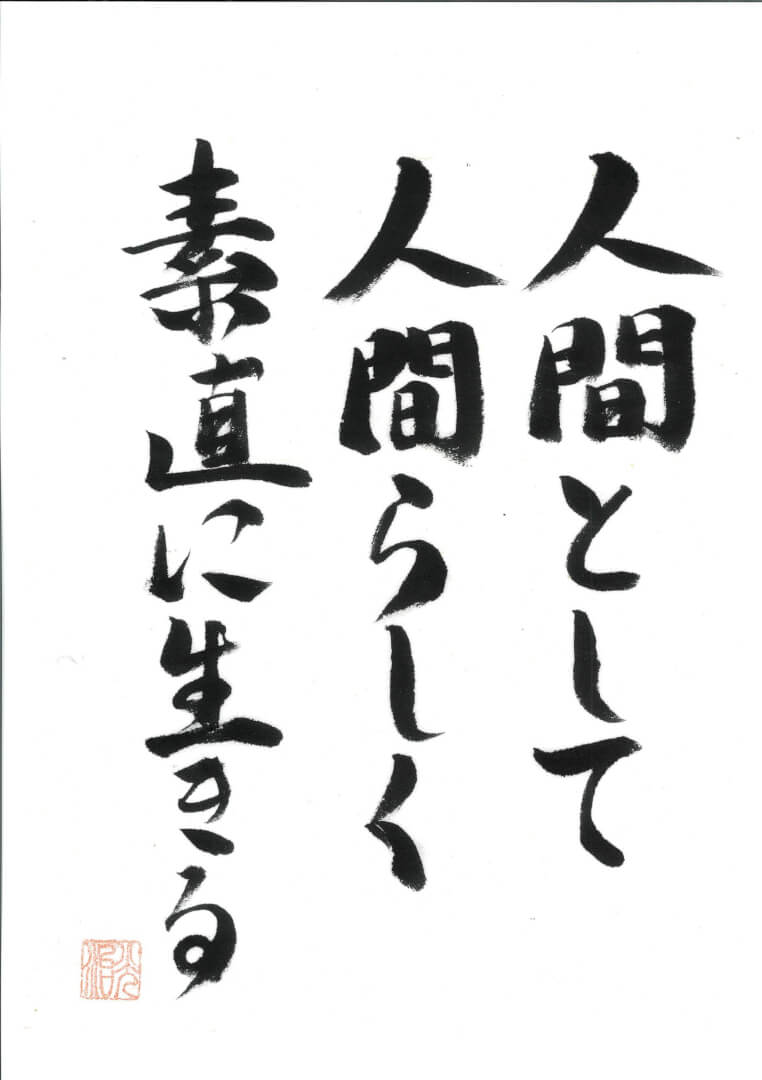 人間として
人間らしく
素直に生きる